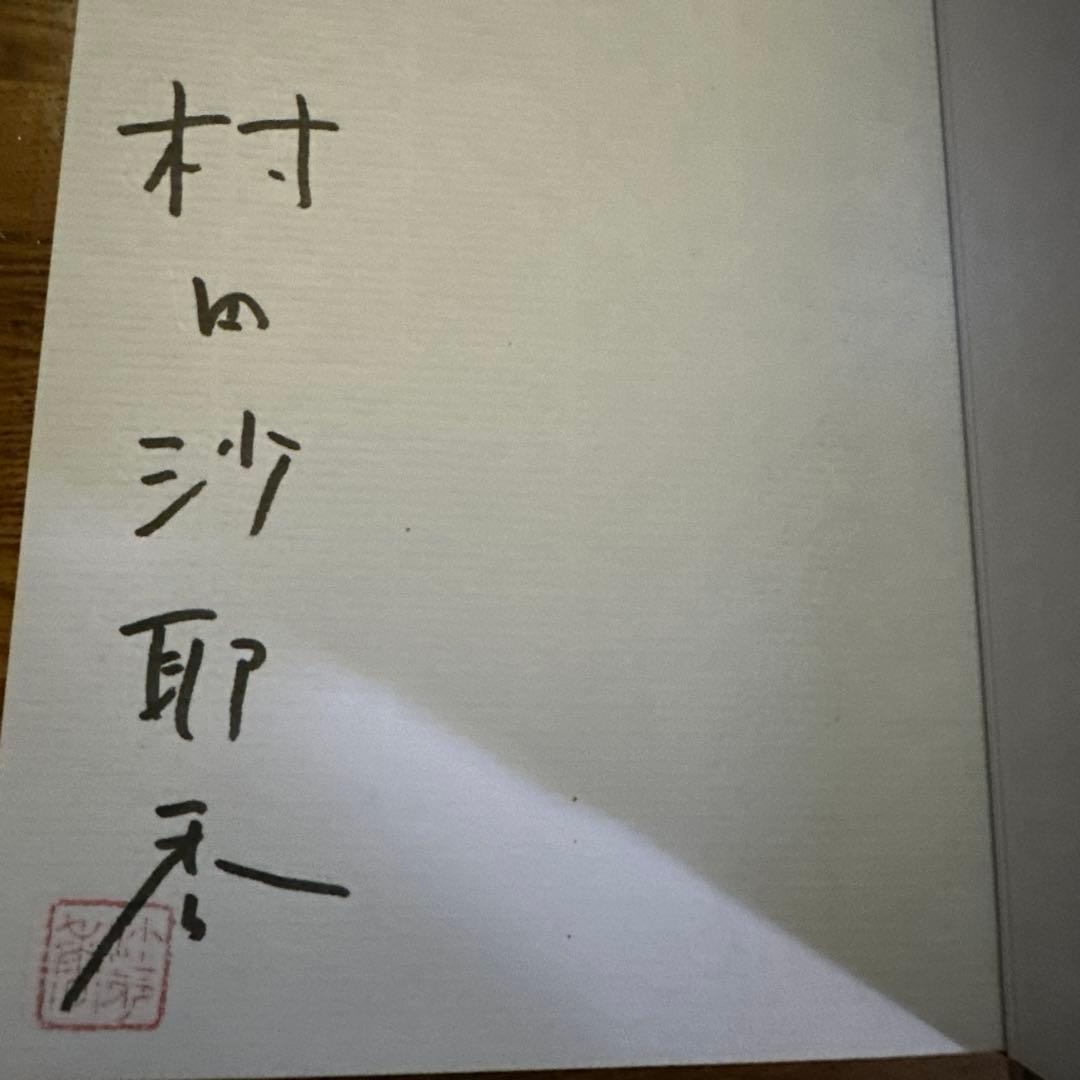 村田沙耶香